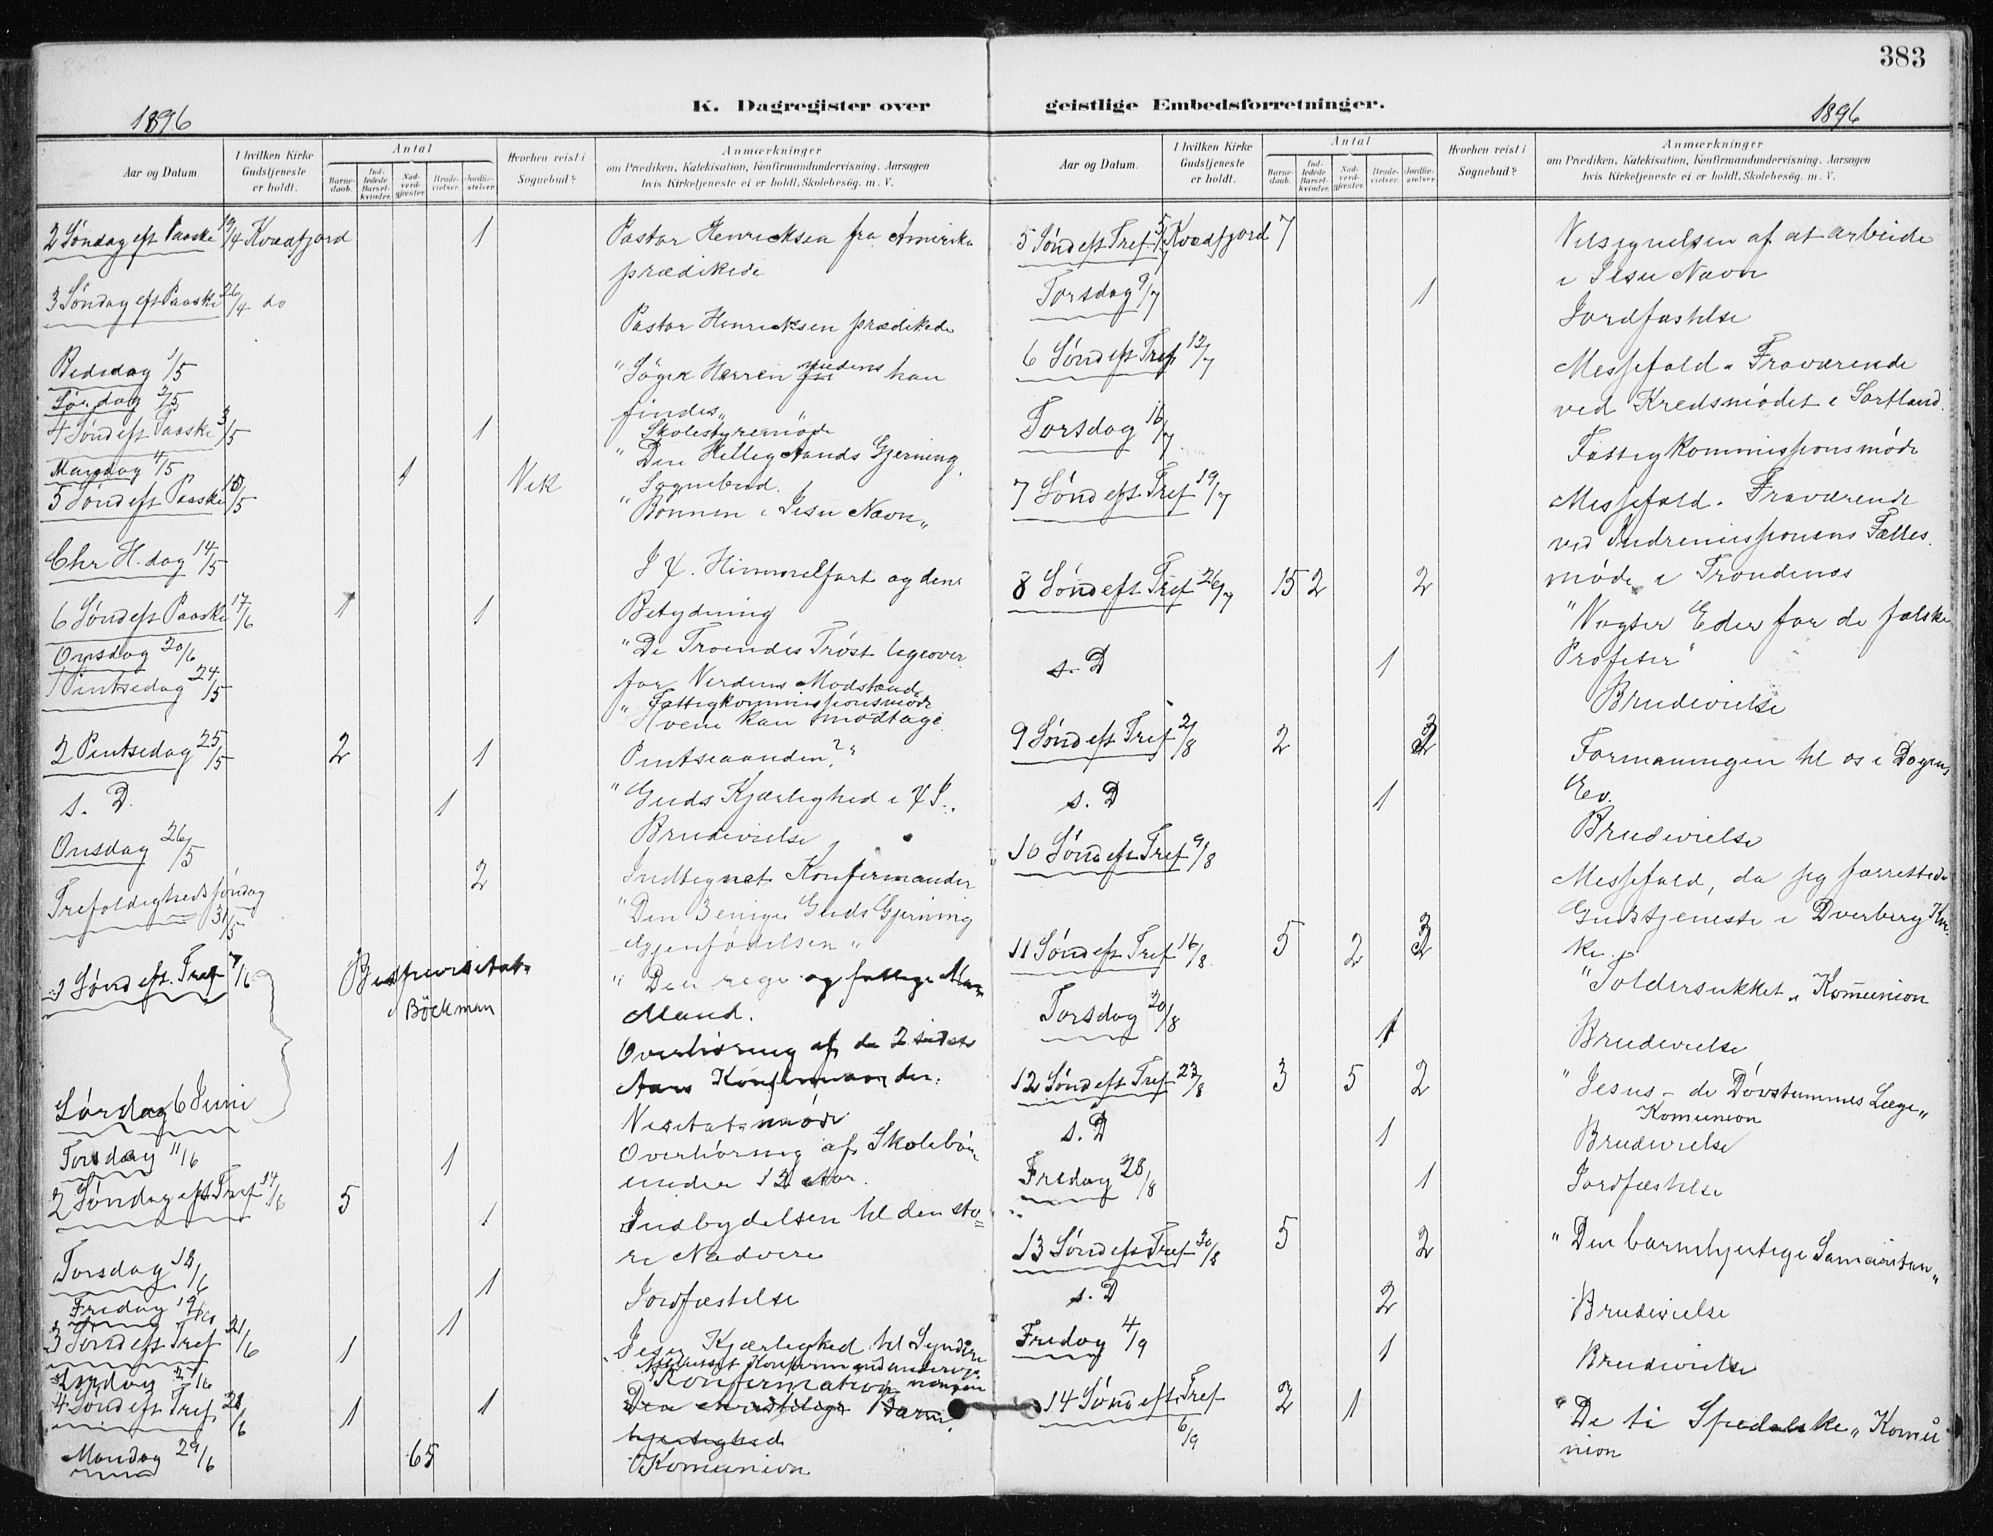 383
K. Dagregister over geistlige Embedsforretninger.
1896
1896
Aar og Datum
I hvilken Kirke Gudstjeneste er holdt.
Antal
Barnedaab.
Indledede Barselkvinder.
Nadverdgjester.
Brudevielser.
Jordfæstelser.
Hvorhen reist i Sognebud?
Anmærkninger
om Prædiken, Katekisation, Konfirmandundervisning, Aarsagen
hvis Kirketjeneste ei er holdt, Skolebesøg, m. V.
2 Søndag eft Paaske 19/4 Kvædfjord 1 Pastor Henricksen fra Amerika
prædikede
3 Søndag eft Paaske 26/4 do
Pastor Henricksen prædikede
Bededag 1/5 "Søger Herren medens han
findes"
Lørdag 2/5 Skolestyremøde
4 Sønd eft Paaske 3/5 1 "Den Hellig Aands Gjerning
Mandag 4/5 1 Vik Sognebud.
5 Sønd eft Paaske 10/5 "Bønnen i Jesu Navn"
Chr H. dag 14/5 J X. Himmelfart og dens
Betydning
6 Sønd eft Paaske 17/6 1 1
"De Troendes Trøst ligeover
for Verdens Modstand
Onsdag 20/6 Fattigkommissionsmøde
1 Pintsedag 24/5 "Hvem kan modtage
Pintseaanden?"
2 Pintsedag 25/5 2 1
"Guds Kjærlighed i X J.
s. D. 1 Brudevielse
Onsdag 26/5
Indtegnet Konfirmander
Trefoldighedssøndag 31/5 2
"Den 3 enige Guds Gjerning
Gjenfødelsen"
1 Sønd eft. Tref 7/6 Bispevisitats
Böckman
"Den rege og fattige
Mand.
Overhøring af de 2 sidste
Aars Konfirmander.
Lørdag 6 Juni Visitatsmøde
Torsdag 11/6 1 Overhøring af Skolebörn
under 12 Aar.
2 Søndag eft Tref 14/6 5 1 Indbydelsen til den sto=
re Nadvere
Torsdag 18/6 1 Jordfæstelse
Fredag 19/6 1
3 Sønd eft Tref 21/6 1 Jesu Kjærlighed til Syndere
Lørdag 27/6
4 Sønd eft Tref 28/6 1 1 Konfirmation
Den christelige Barm
hjertighed
Mandag 29/6 65 Komunion
Aar og Datum.
I hvilken Kirke Gudstjeneste er holdt.
Antal
Barnedaab.
Indledede Barselkvinder.
Nadverdgjester.
Brudevielser.
Jordfæstelser.
Hvorhen reist i Sognebud?
Anmærkninger
om Prædiken, Katekisation, Konfirmandundervisning, Aarsagen
hvis Kirketjeneste ei er holdt, Skolebesøg, m. V.
5 Sønd eft Tref 5/7 Kvædfjord 7 Velsignelsen af at arbeide
i Jesu Navn
Torsdag 9/7 1 Jordfæstelse
6 Sønd eft Tref 12/7 Messefald. Fraværende
ved Kredsmødet i Sortland.
Torsdag 16/7 Fattigkommissionsmøde
7 Sønd eft Tref 19/7 Messefald. Fraværende
ved Indremissionens Fælles
møde i Trondenæs
8 Sønd eft Tref 26/7 15 2 2 "Vogter Eder for de falske
Profeter"
s. D 1 Brudevielse
9 Sønd eft Tref 2/8 2 Formaningen til os i Dagens
Ev.
s. D 1 Brudevielse
10 Sønd eft Tref 9/8 Messefald, da jeg forrettede
Gudstjeneste i Dverberg Kir
ke.
11 Sønd eft Tref 16/8 5 2 "Toldersukket" Komunion
Torsdag 20/8 1 Brudevielse
12 Sønd eft Tref 23/8 3 5 2 "Jesus - de Døvstummes Læge"
Komunion
s. D 1 Brudevielse
Fredag 28/8 1 Jordfæstelse
13 Sønd eft Tref 30/8 5 2 "Den barmhjertige Samaritan"
s. D 2 Brudevielse
Fredag 4/9 1 Brudevielse
14 Sønd eft Tref 6/9 2 1 "De ti Spedalske" Komu
nion